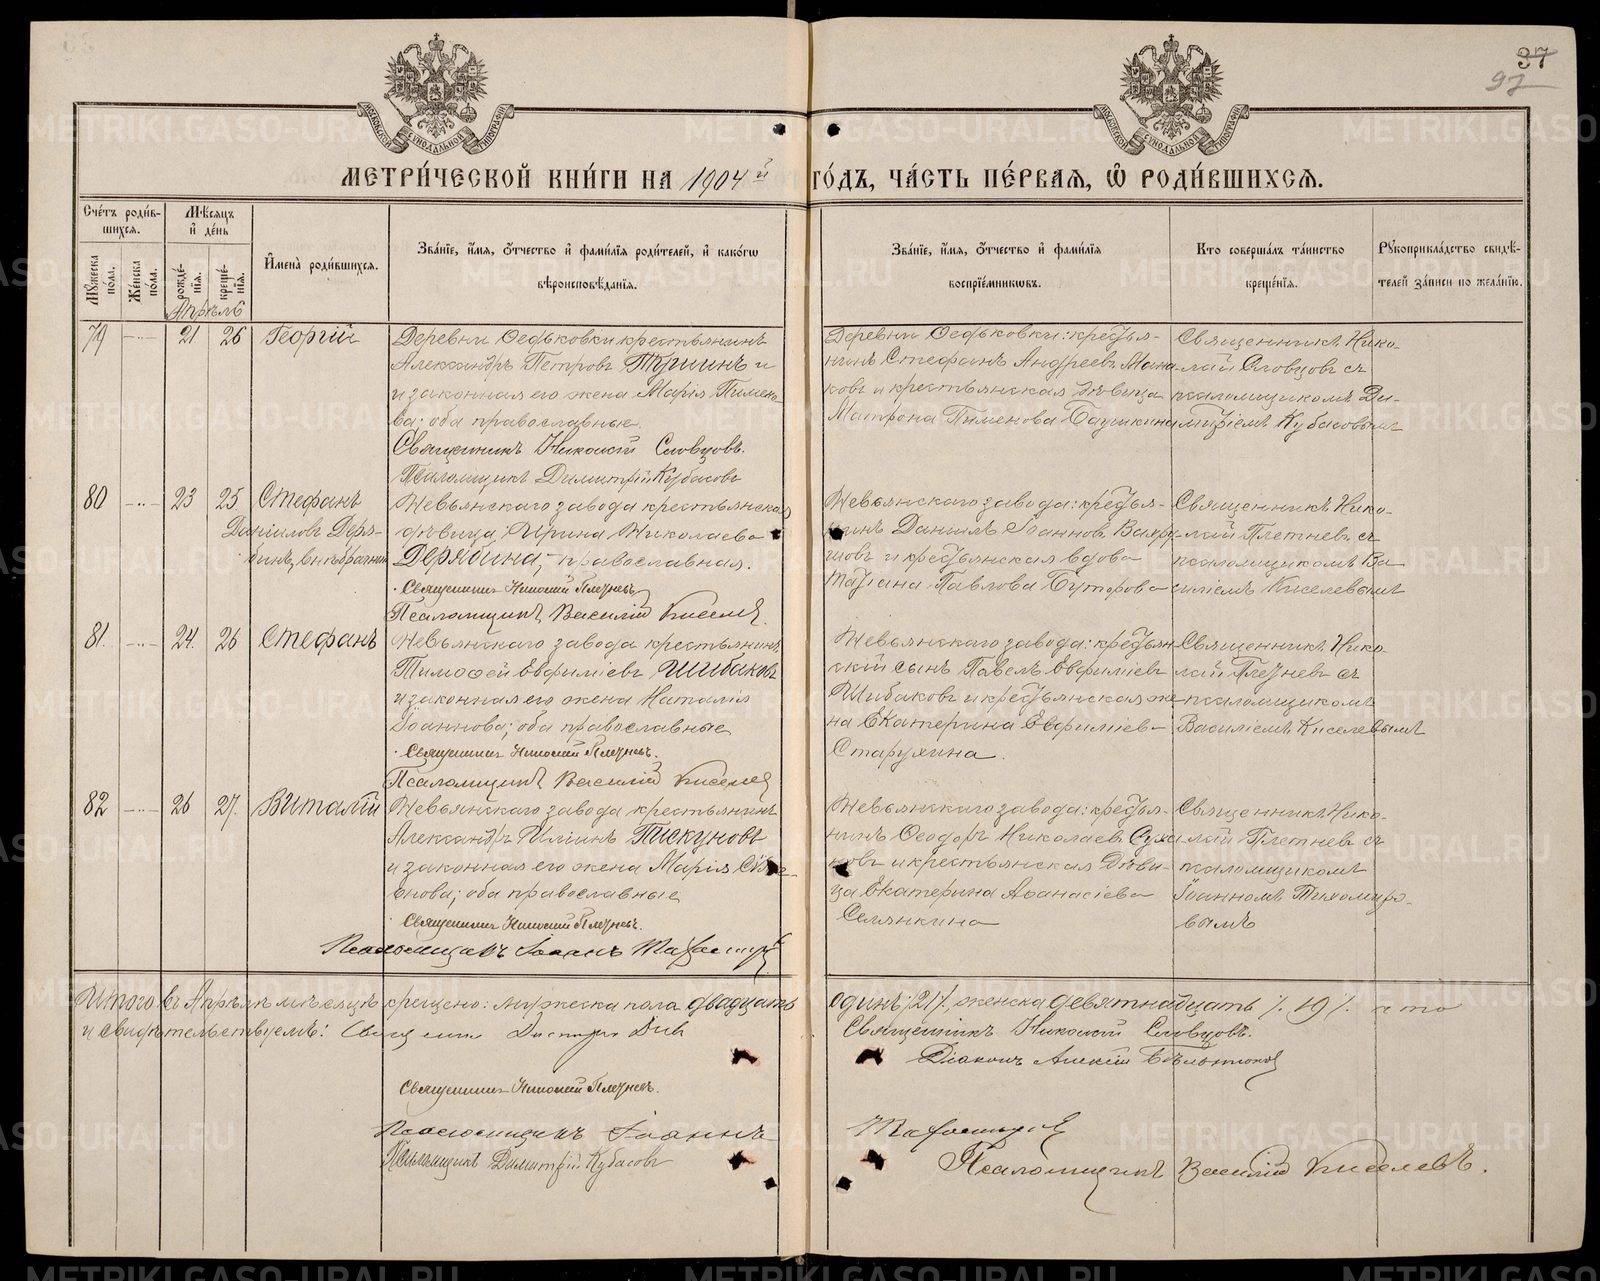 37
97
МЕТРИ́ЧЕСКОЙ КНИ́ГИ НА 1904й ГО́ДЪ, ЧА́СТЬ ПЕ́РВАЯ, Ѡ РОДИ́ВШИХСЯ.
Сче́тъ роди́вшихся.
Мꙋжеска пола.
Же́нска по́ла.
Мѣсяцъ и де́нь
рожде́нїя.
креще́нїя.
И҆мена̀ роди́вшихся.
Зва́нїе, и҆́мя, ѻ҆́тчество и҆ фами́лїя роди́телей, и҆ како́гѡ
вѣроисповѣ́данїя.
Зва́нїе, и҆́мя, ѻ҆́тчество и҆ фами́лїя
воспрїе́мникѡвъ.
Кто соверша́лъ та́инство
креще́нїя.
Рꙋкоприкла́дство свидѣ́-
телей за́писи по жела́нїю.
Апрѣль
79 21 26 Георгій
Деревни Ѳедьковки крестьянинъ
Александръ Петровъ Тушинъ и
и законная его жена Марія Пимено-
ва; оба православные.
Священникъ Николай Словцовъ.
Псаломщикъ Димитрій Кубасовъ
Деревни Ѳедьковки: крестья-
нинъ Стефанъ Андреевъ
ковъ и крестьянская дѣвица
Матрона Пименова
Священникъ Нико-
лай Словцовъ съ
псаломщикомъ Ди-
митріемъ Кубасовымъ
80 23 25 Стефанъ
Даніиловъ Деря-
бинъ, внѣбрачный
Невьянскаго завода крестьянская
дѣвица Ирина Николаева
Дерябина, православная.
Священникъ Николай Плетневъ
Псаломщикъ Василій Киселевъ
Невьянскаго завода: крестья-
нинъ Даніилъ Іоанновъ
шовъ и крестьянская вдова
Татіана Павлова Бутырова
Священникъ Нико-
лай Плетневъ съ
псаломщикомъ Ва-
силіемъ Киселевымъ
81. 24. 26 Стефанъ
Невьянскаго завода крестьянинъ
Тимоѳей Евфиміевъ Шибаковъ
и законная его жена Наталія
Іоаннова; оба православные
Священникъ Николай Плетневъ.
Псаломщикъ Василій Киселевъ
Невьянскаго завода: крестьян-
скій сынъ Павелъ Евфиміевъ
Шибаковъ и крестьянская же-
на Екатерина Евфиміева
Старухина.
Священникъ Нико-
лай Плетневъ съ
псаломщикомъ
Василіемъ Киселевымъ
82 26 27. Виталій
Невьянскаго завода крестьянинъ
Александръ Ильинъ Пискуновъ
и законная его жена Марія
нова; оба православные
Священникъ Николай Плетневъ.
Псаломщикъ Іоаннъ
Невьянскаго завода: крестья-
нинъ Ѳеодоръ Николаевъ Суха-
новъ и крестьянская дѣви-
ца Екатерина Аѳанасіева
Селянкина
Священникъ Нико-
лай Плетневъ съ
псаломщикомъ
Іоанномъ Тихомиро-
вымъ
Итого въ Апрѣлѣ мѣсяцѣ крещено: мужеска пола двадцать один: 21, женска девятнадцать 19 что
и свидѣтельствуемъ:
Священникъ Николай Словцовъ.
Діаконъ Алексій
Священникъ Николай Плетневъ.
Псаломщикъ Іоаннъ
Псаломщикъ Димитрій Кубасовъ
Псаломщикъ Василій Киселевъ.
METRIKI.GASO-URAL.RU